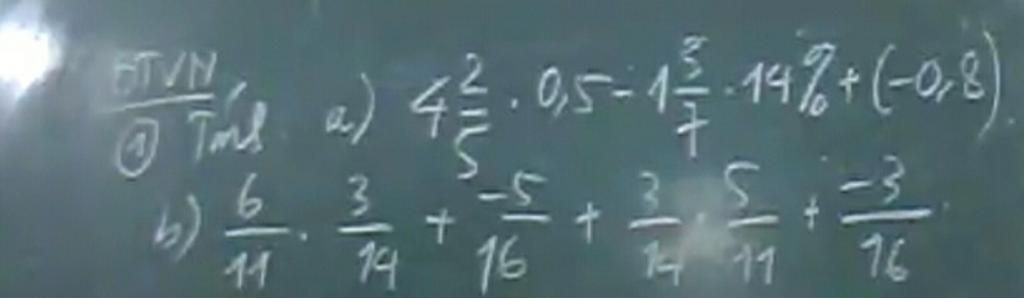 BTVN
① Tính a) 4 2/5 . 0,5 - 1 3/7 . 14% + (-0,8).
b) 6/11 . 3/14 + -5/16 + 3/14 . 5/11 + -3/16